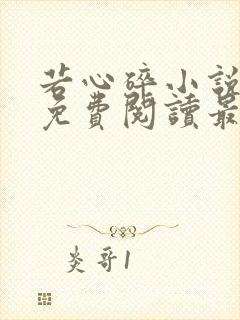 若心碎小說
免費閱讀最
炎哥1